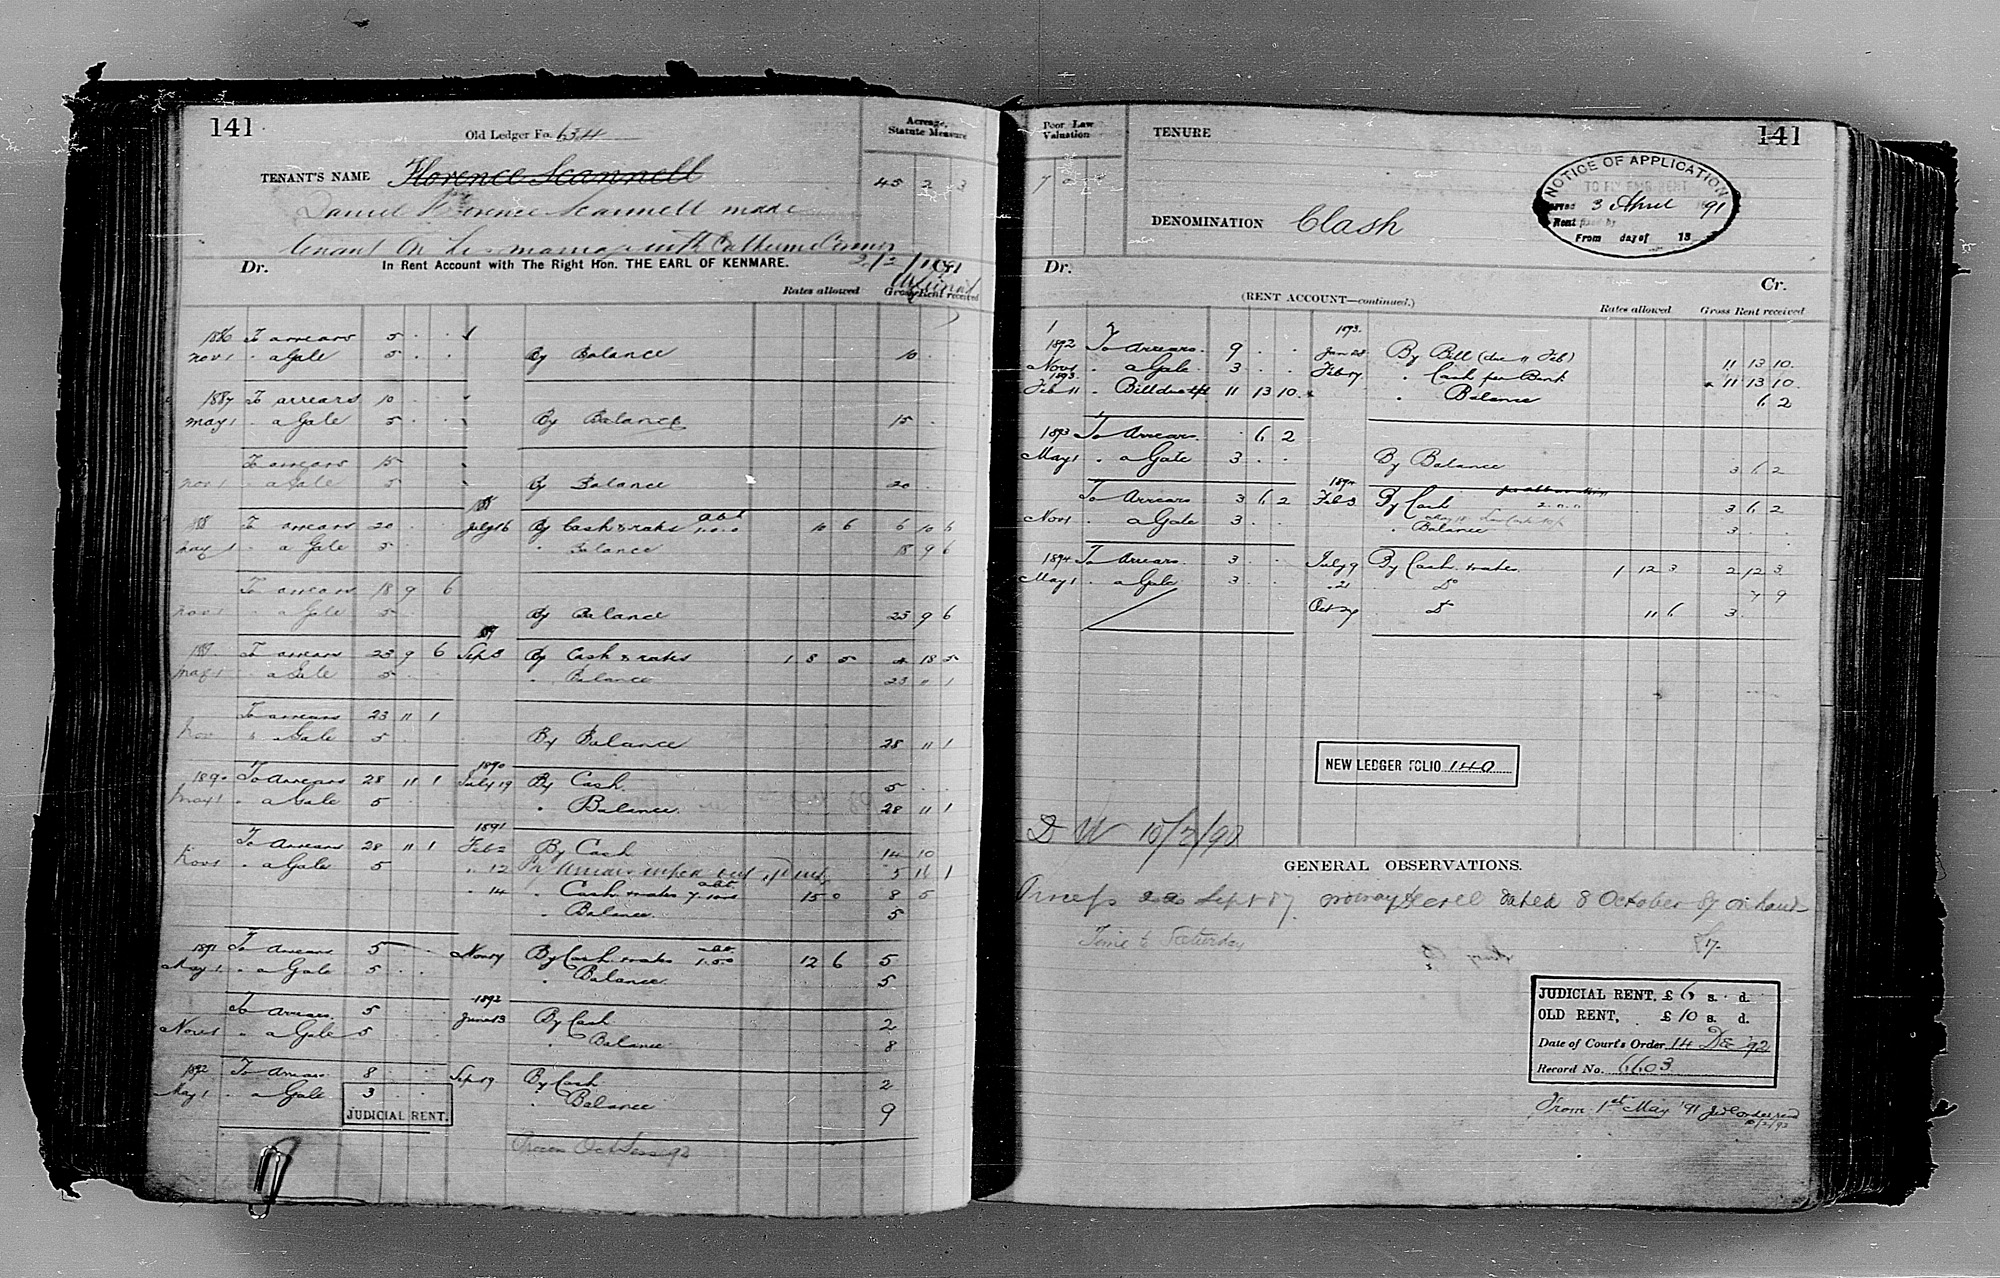 141
Old Ledger Fo. 634
Acreage, Statute Measure
TENANT'S NAME Florence Scannell
45 2 3
Daniel Florence Scannell made
tenant on his marriage with Catherine Connor
2/2/1891
Dr. In Rent Account with The Right Hon. THE EARL OF KENMARE. Cr.
Rates allowed Gross Rent received
1886 To arrears 5 . .
Nov 1 " a Gale 5 . . By Balance 10 . .
1887 To arrears 10 . .
May 1 " a Gale 5 . . By Balance 15 . .
To arrears 15 . .
Nov 1 " a Gale 5 . . By Balance 20 . .
188 To arrears 20 . . July 16 By Cash & rates abt 1.0.0 10 6 6 10 6
May 1 " a Gale 5 . . " Balance 18 9 6
To arrears 18 9 6
Nov 1 " a Gale 5 . . By Balance 23 9 6
89
189 To arrears 23 9 6 Sep 3 By Cash & rates 1 8 5 18 5
May 1 " a Gale 5 . . " Balance 23 11 1
To arrears 23 11 1
Nov " a Gale 5 . . By Balance 28 11 1
1890
1890 To Arrears 28 11 1 July 19 By Cash 5 . .
May 1 " a Gale 5 . . " Balance 28 11 1
1891
To Arrears 28 11 1 Feb 2 By Cash 14 10
Nov 1 " a Gale 5 " 12 By Arrears wiped out 5 11 1
" 14 " Cash & rates abt 15 0 8 5
" Balance 5
1891 To Arrears 5 Nov 17 By Cash & rates 1.0.0 12 6 5
May 1 " a Gale 5 . . " Balance 5
1892
To Arrears 5 June 13 By Cash 2
Nov 1 " a Gale 5 " Balance 8
1892 To Arrears 8 Sep 19 By Cash 2
May 1 " a Gale 3 " Balance 9
JUDICIAL RENT.
Process Oct Sess 92
141
Poor Law Valuation
TENURE
7 0
NOTICE OF APPLICATION
TO FIX FAIR RENT
Served 3 April 1891
Rent fixed by
From day of 18
DENOMINATION Clash
Dr. Cr.
(RENT ACCOUNT—continued.)
Rates allowed Gross Rent received
1893
1892 To Arrears 9 . . Jan 28 By Bill (due 11 Feb) 11 13 10
Nov 1 " a Gale 3 . . Feb 17 " Cash per Bank 11 13 10
1893
Feb 11 " Bill due 11 13 10 " Balance 6 2
1893 To Arrears . 6 2
May 1 " a Gale 3 . . By Balance 3 6 2
1894
To Arrears 3 6 2 Feb 3 By Cash 2.0.0 3 6 2
Nov 1 " a Gale 3 . . " Balance 3 . .
1894 To Arrears 3 . . July 9 By Cash & rates 1 12 3 2 12 3
May 1 " a Gale 3 . . " 21 Do 7 9
Oct 24 Do 11 6 3 .
NEW LEDGER FOLIO 140
GENERAL OBSERVATIONS.
Process Sept 87. dated 8 October 87 on hand
Time to Saturday
JUDICIAL RENT, £ 6 s. d.
OLD RENT, £ 10 s. d.
Date of Court's Order 14 Dec 92
Record No. 6603
From 1st May '91